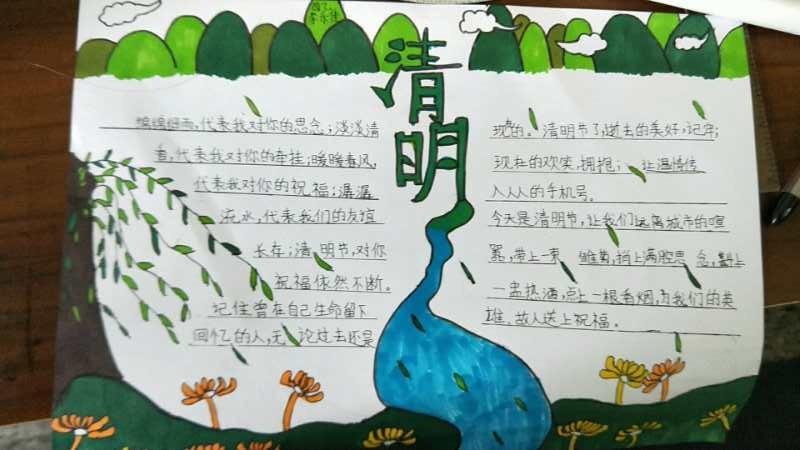 清明
绵绵细雨,代表我对你的思念;淡淡清
香,代表我对你的牵挂;暖暖春风,
代表我对你的祝福;潺潺
流水,代表我们的友谊
长存;清明节,对你
祝福依然不断。
记住曾在自己生命留下
回忆的人,无论过去还是
现的。清明节了,逝去的美好,记牢;
现在的欢笑,拥抱;让温情传
入人人的手机号。
今天是清明节,让我们远离城市的喧
嚣,带上一束雏菊,捎上满腔思念,斟上
一盅热酒,点上一根香烟,为我们的英
雄、故人送上祝福。